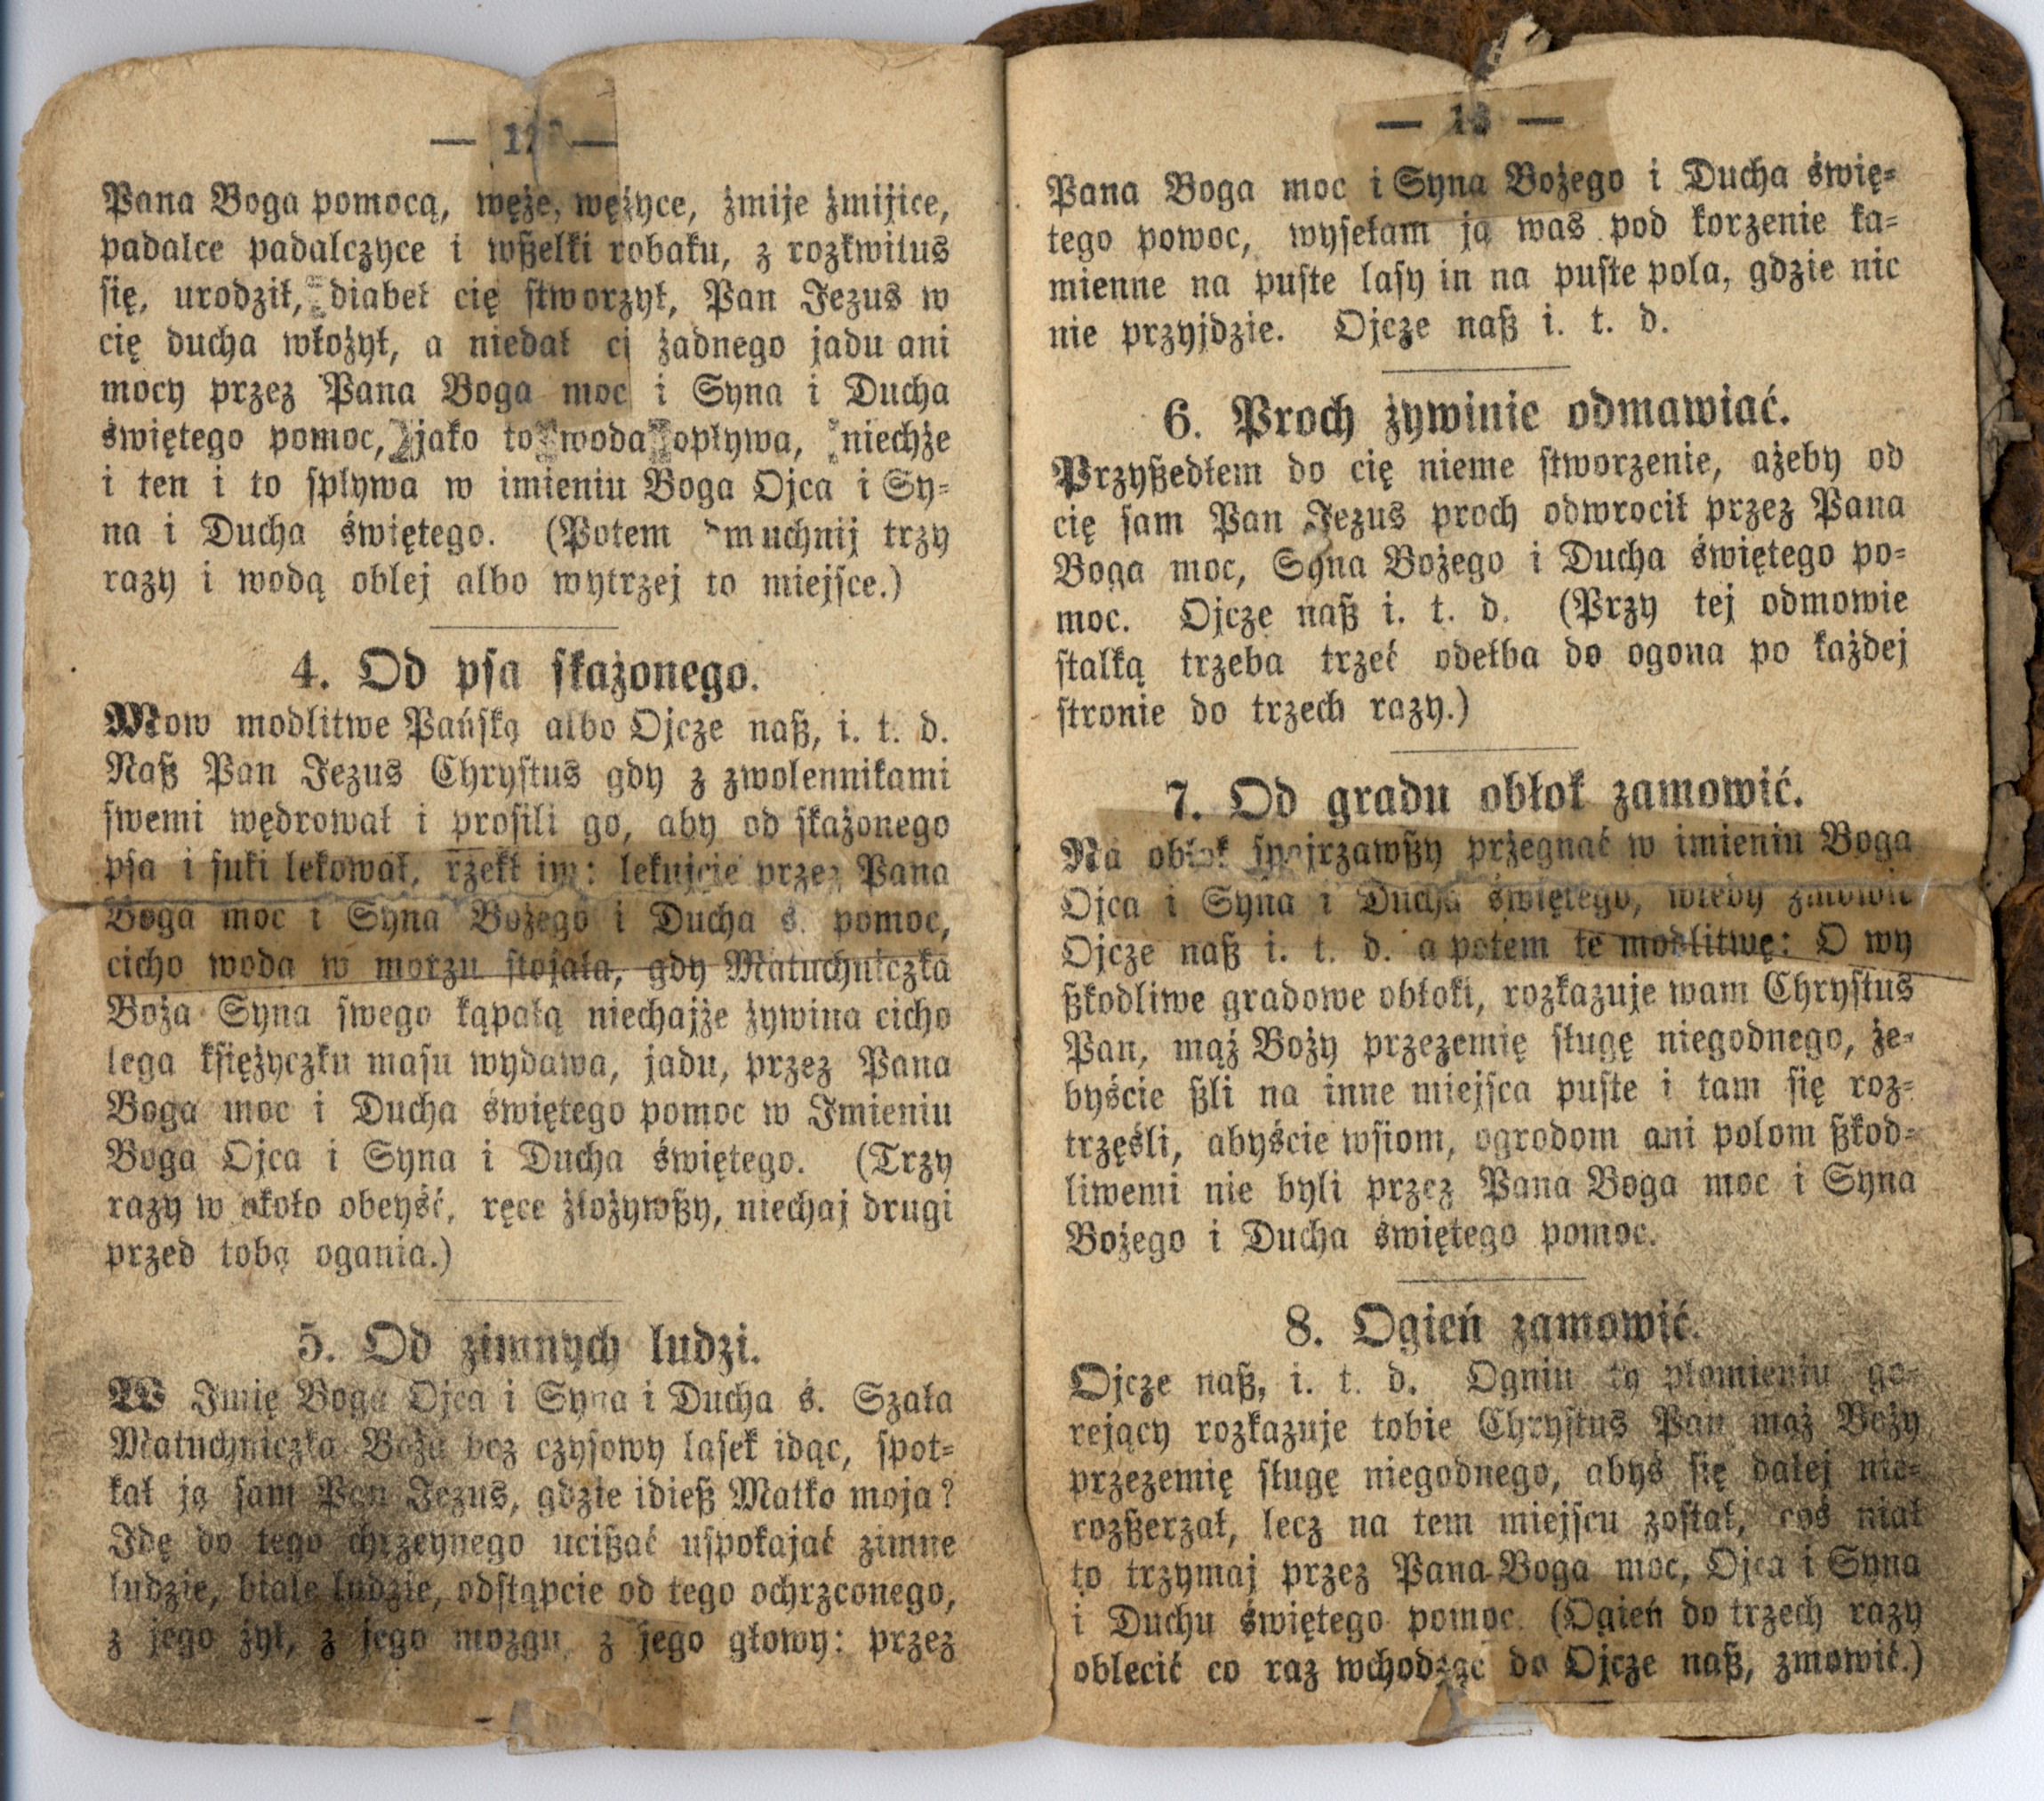 — 12 —
Pana Boga pomocą, węże, wężyce, żmije żmijice,
padalce padalczyce i wßelki robaku, z rozkwitus
się, urodził, diabeł cię stworzył, Pan Jezus w
cię ducha włożył, a niedał ci żadnego jadu ani
mocy przez Pana Boga moc i Syna i Ducha
świętego pomoc, jako to woda opływa, niechże
i ten i to spływa w imieniu Boga Ojca i Sy-
na i Ducha świętego. (Potem dmuchnij trzy
razy i wodą oblej albo wytrzej to miejsce.)
4. Od psa skażonego.
Mow modlitwe Pańską albo Ojcze naß, i. t. d.
Naß Pan Jezus Chrystus gdy z zwolennikami
swemi wędrował i prosili go, aby od skażonego
psa i suki lekował, rzekł im: lekujcie przez Pana
Boga moc i Syna Bożego i Ducha ś. pomoc,
cicho woda w morzu stojała, gdy Matuchniczka
Boża Syna swego kąpałą niechajże żywina cicho
lega księżyczku masu wydawa, jadu, przez Pana
Boga moc i Ducha świętego pomoc w Imieniu
Boga Ojca i Syna i Ducha świętego. (Trzy
razy w około obeyść, ręce złożywßy, niechaj drugi
przed tobą ogania.)
5. Od zimnych ludzi.
W Imię Boga Ojca i Syna i Ducha ś. Szała
Matuchniczka Boża bez czysowy lasek idąc, spot-
kał ją sam Pan Jezus, gdzie idieß Matko moja?
Idę do tego chrzeynego ucißać uspokajać zimne
ludzie, białe ludzie, odstąpcie od tego ochrzconego,
z jego żył, z jego mozgu, z jego głowy: przez
— 13 —
Pana Boga moc i Syna Bożego i Ducha świę-
tego powoc, wysełam ją was pod korzenie ka-
mienne na puste lasy in na puste pola, gdzie nic
nie przyjdzie. Ojcze naß i. t. d.
6. Proch żywinie odmawiać.
Przyßedłem do cię nieme stworzenie, ażeby od
cię sam Pan Jezus proch odwrocił przez Pana
Boga moc, Syna Bożego i Ducha świętego po-
moc. Ojcze naß i. t. d. (Przy tej odmowie
stalką trzeba trzeć odełba do ogona po każdej
stronie do trzech razy.)
7. Od gradu obłok zamowić.
Na obłok spojrzawßy przegnać w imieniu Boga
Ojca i Syna i Ducha świętego, wtedy zmowić
Ojcze naß i. t. d. a potem te modlitwę: O wy
ßkodliwe gradowe obłoki, rozkazuje wam Chrystus
Pan, mąż Boży przezemię sługę niegodnego, że-
byście ßli na inne miejsca puste i tam się roz-
trzęśli, abyście wsiom, ogrodom ani polom ßkod-
liwemi nie byli przez Pana Boga moc i Syna
Bożego i Ducha świętego pomoc.
8. Ogień zamowić.
Ojcze naß, i. t. d. Ogniu ty płomieniu go-
rejący rozkazuje tobie Chrystus Pan mąż Boży
przezemię sługę niegodnego, abyś się dałej nie-
rozßerzał, lecz na tem miejscu został, coś niał
to trzymaj przez Pana Boga moc, Ojca i Syna
i Duchu świętego pomoc. (Ogień do trzech razy
oblecić co raz wchodząc do Ojcze naß, zmowić.)